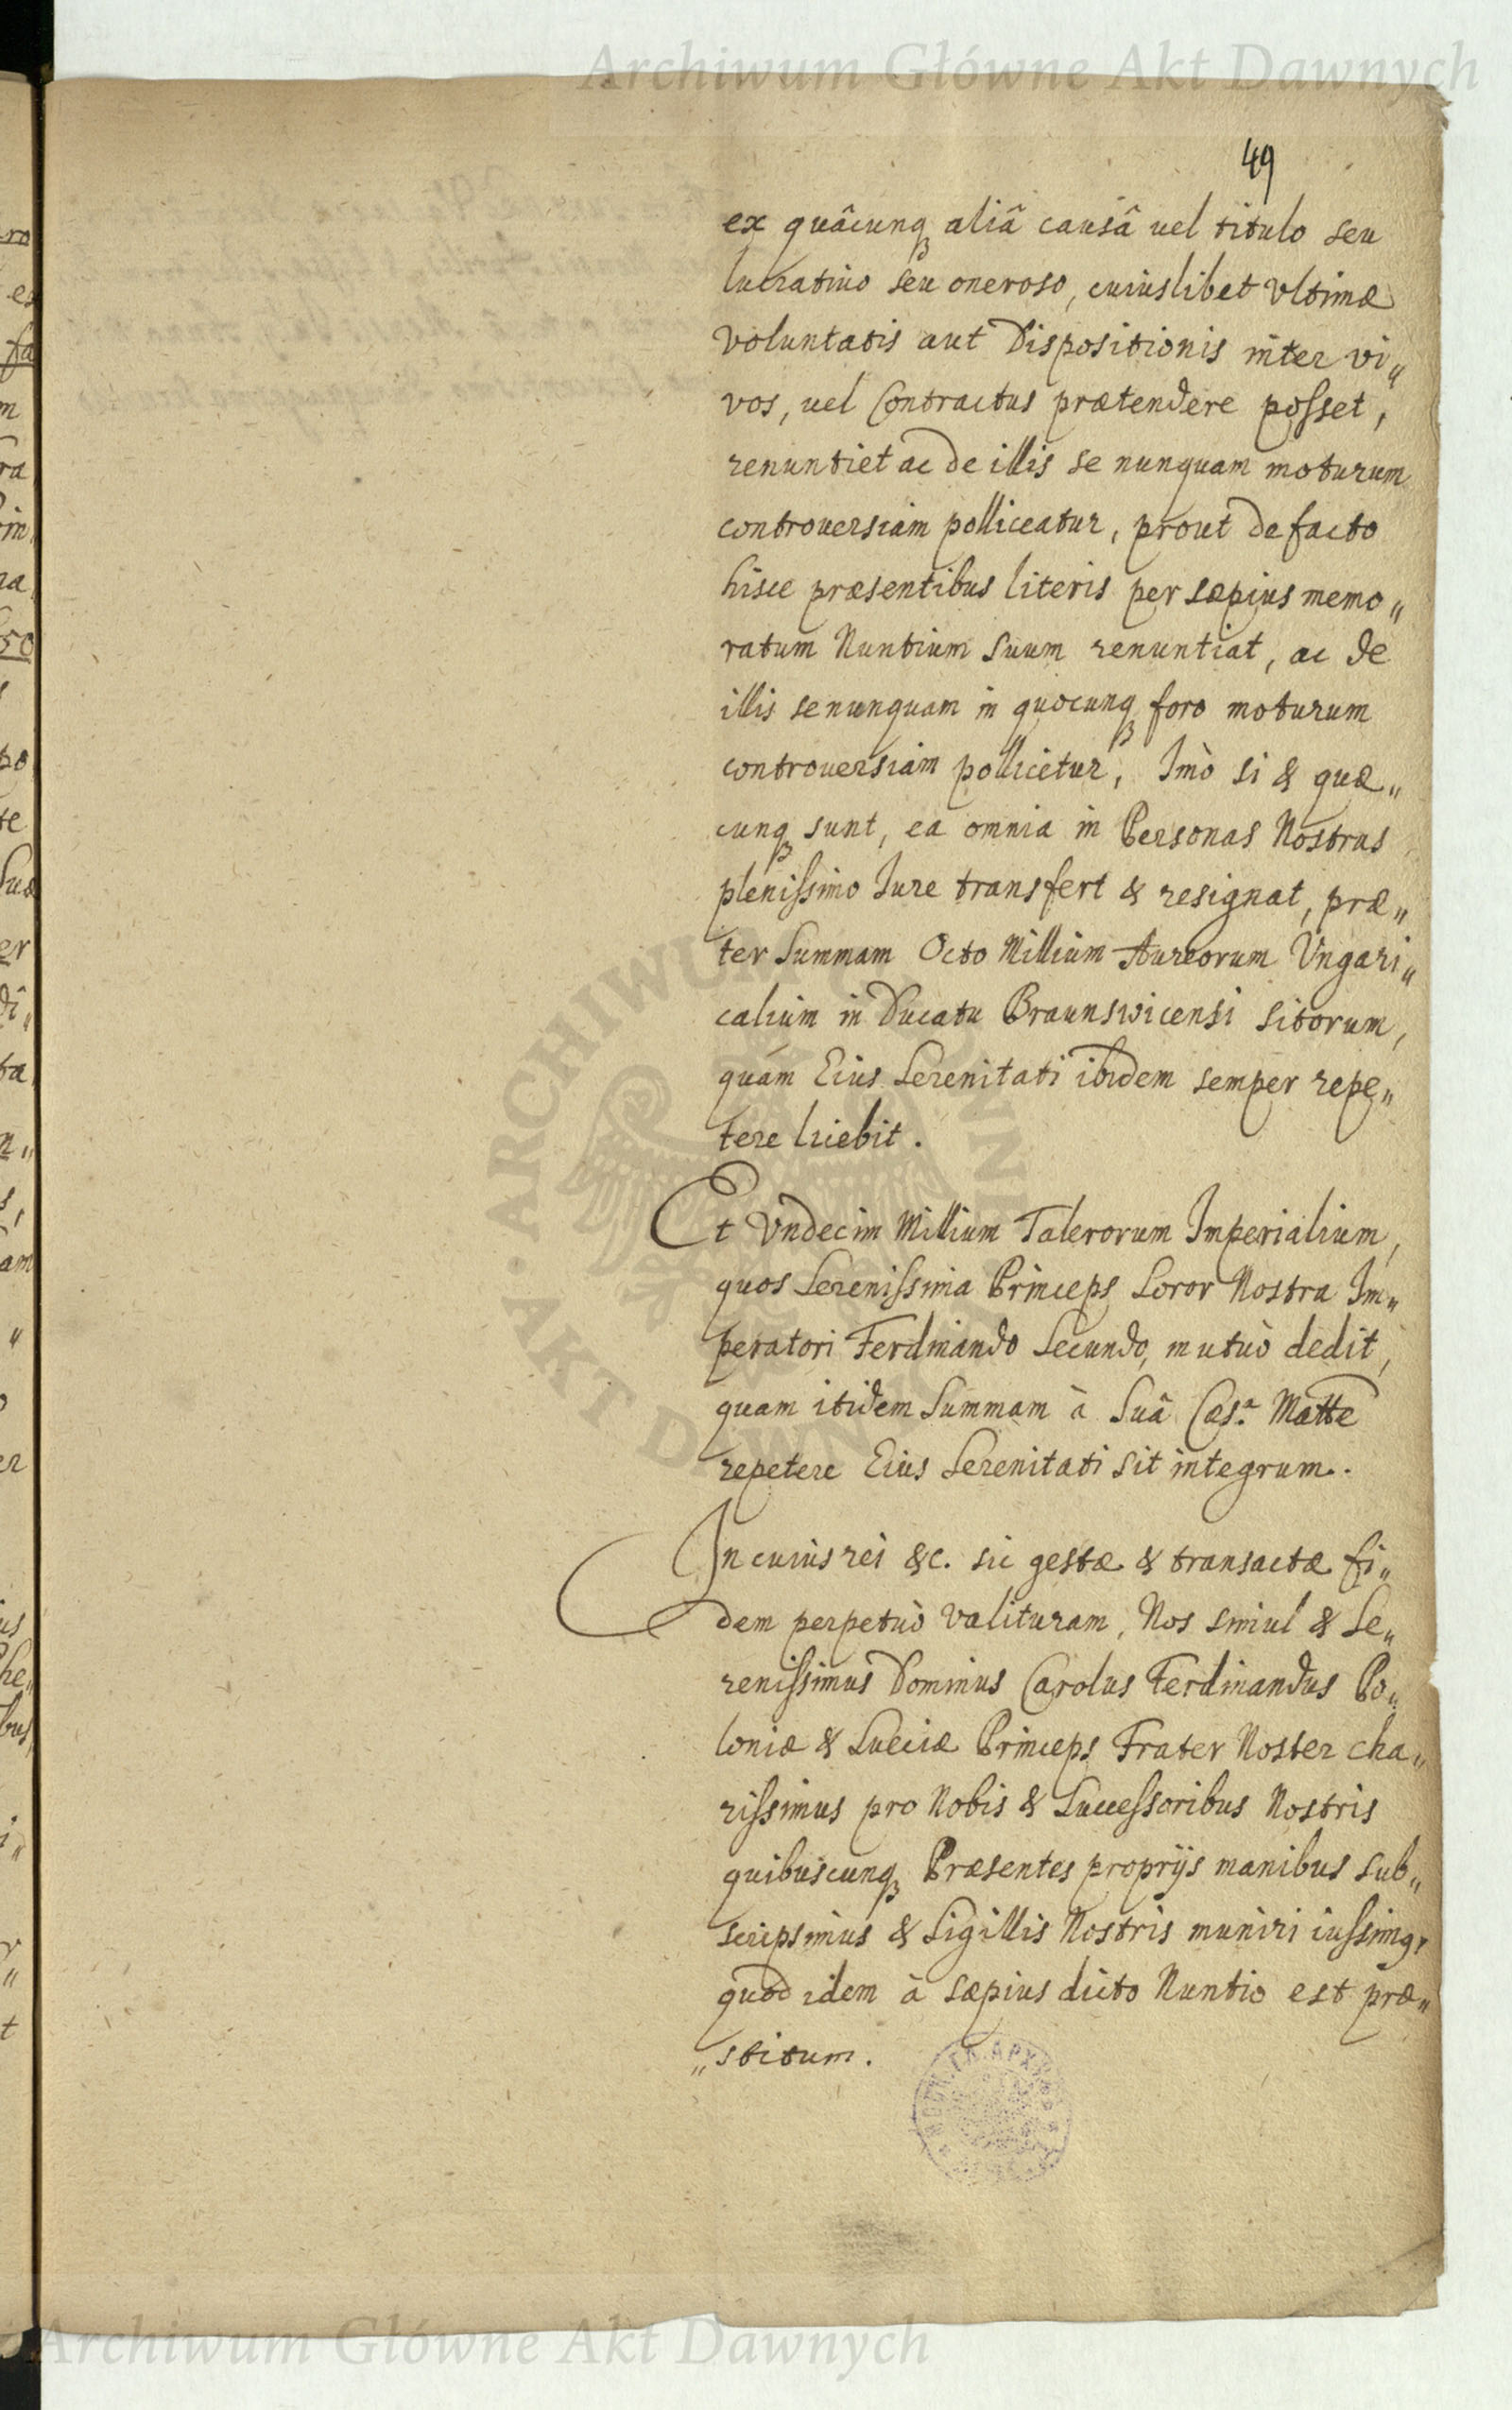 Archiwum Główne Akt Dawnych
49
ex quâcunqꝫ aliâ causâ uel titulo seu
lucratiuo seu oneroso, cuiuslibet Vltimæ
Voluntatis aut Dispositionis inter vi„
vos, uel Contractus prætendere posset,
renuntiet ac de illis se nunquam moturum
controuersiam polliceatur, prout de facto
hisce præsentibus literis per sæpius memo„
ratum Nuntium Suum renuntiat, ac de
illis se nunquam in quocunqꝫ foro moturum
controuersiam pollicetur, Imò si & quæ„
cunqꝫ sunt, ea omnia in Personas Nostras
plenissimo Iure transfert & resignat, præ„
ter Summam Octo Millium Aureorum Vngari„
calium in Ducatu Braunswicensi sitorum,
quam Eius Serenitati ibidem semper repe„
tere liciebit.
Et Vndecim Millium Talerorum Imperialium,
quos Serenissima Princeps Soror Nostra Im„
peratori Ferdinando Secundo, mutuò dedit,
quam itidem Summam à Suâ Cæs.ᵃ Matte
repetere Eius Serenitati sit integrum.
In cuius rei &c. sic gestæ & transactæ fi„
dem perpetuò Valituram, Nos simul & Se„
renissimus Dominus Carolus Ferdinandus Po„
loniæ & Sueciæ Princeps Frater Noster cha„
rissimus pro Nobis & Successoribus Nostris
quibuscunqꝫ Præsentes proprijs manibus sub„
scripsimus & Sigillis Nostris muniri iussimꝰ,
quod idem à sæpius dicto Nuntio est præ„
„stitum.
ARCHIWUM GŁÓWNE AKT DAWNYCH
Archiwum Główne Akt Dawnych